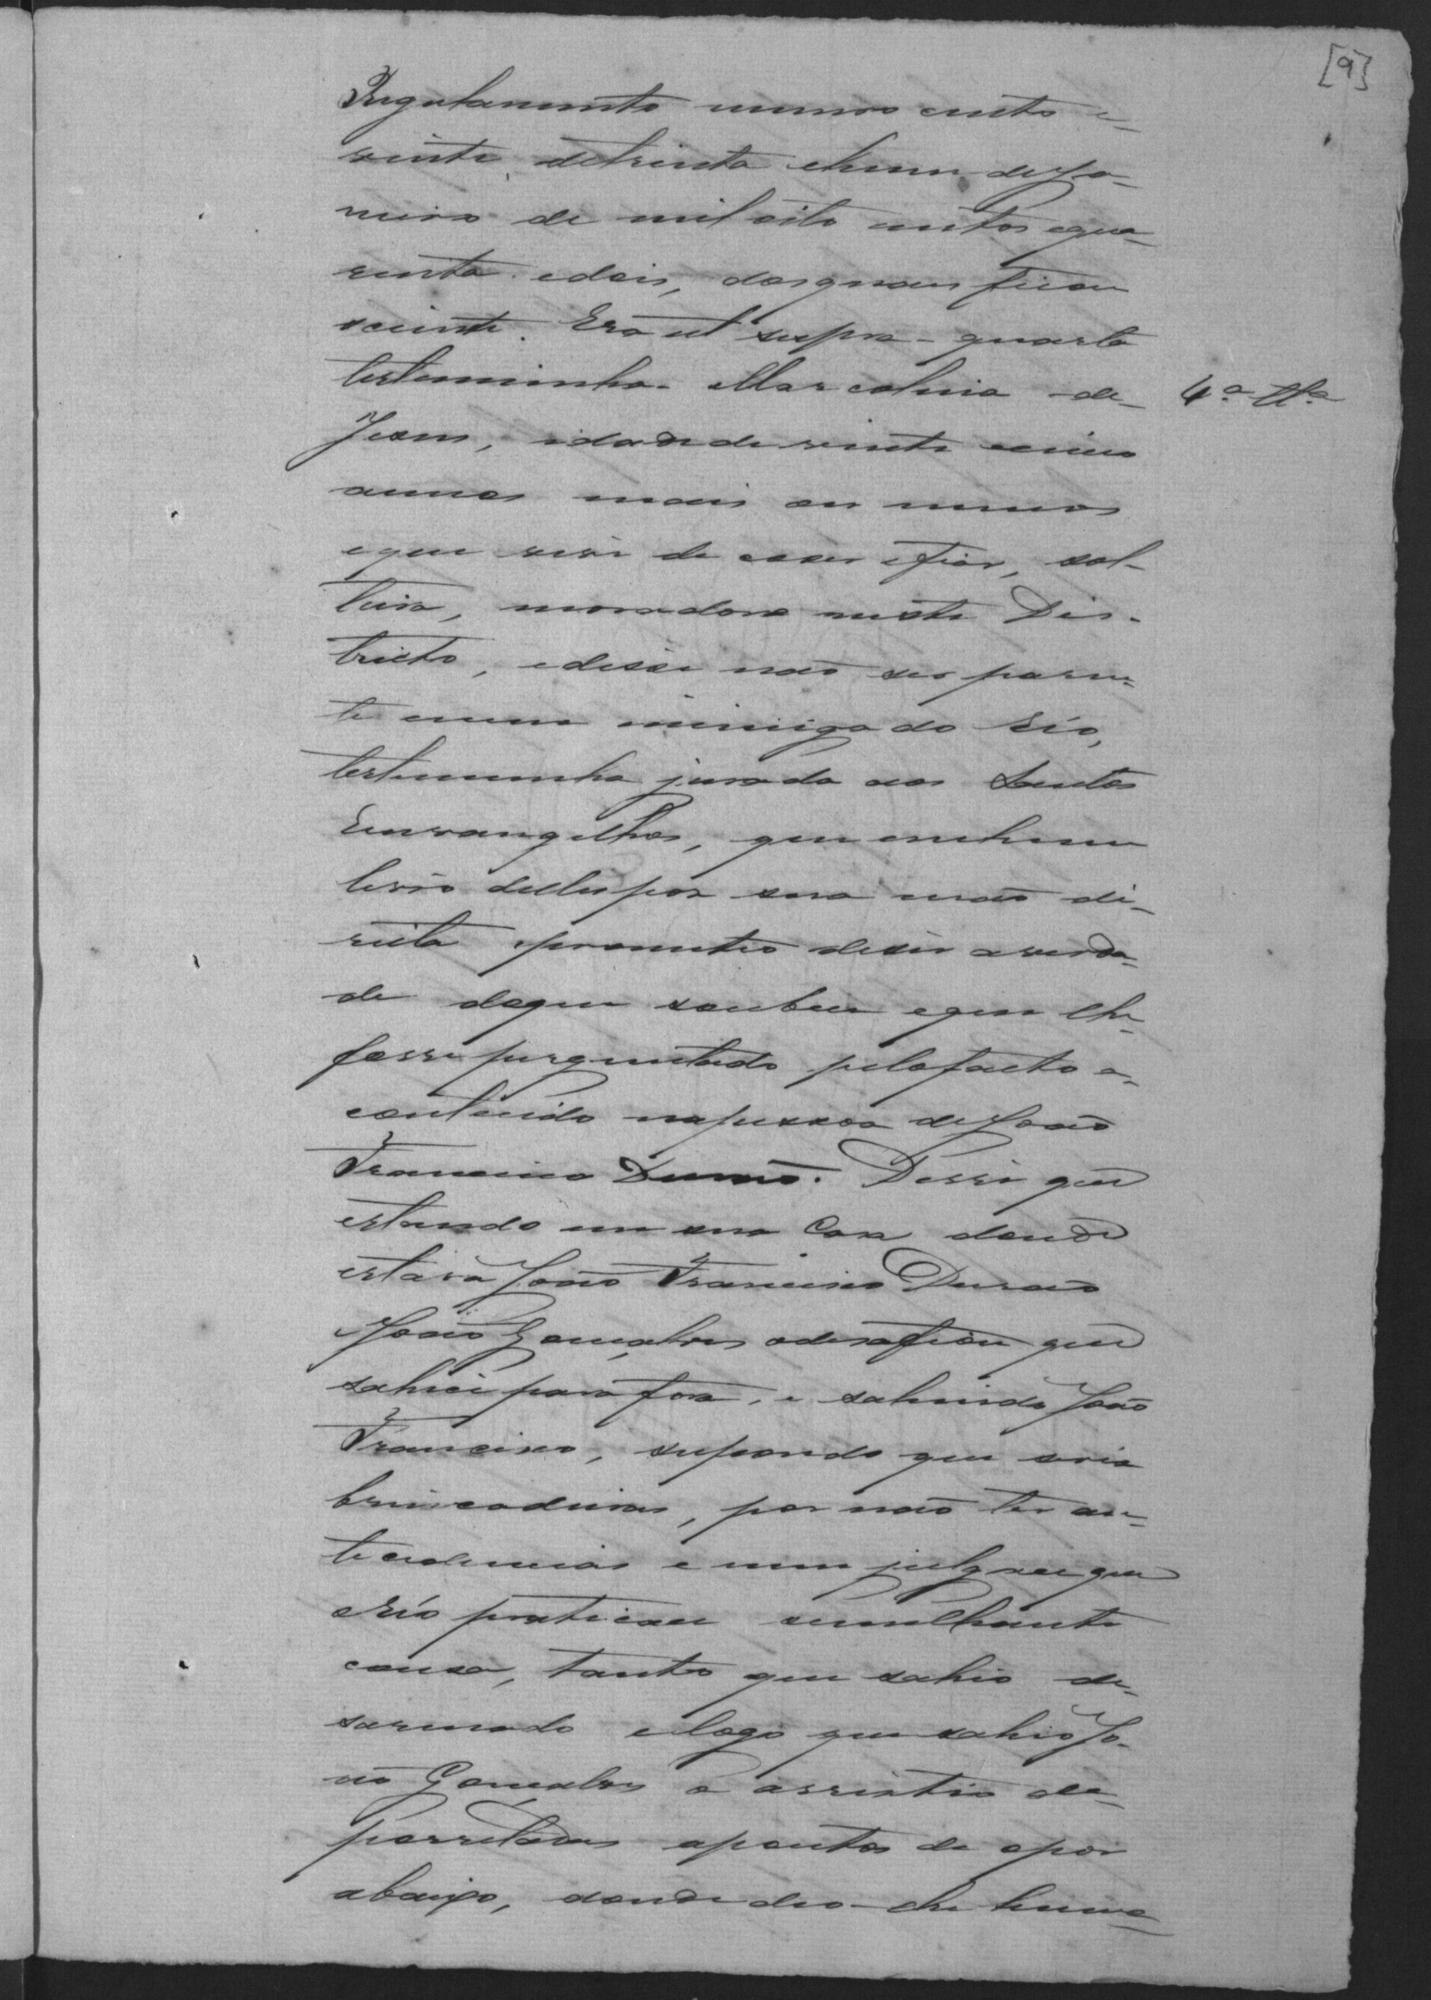 [9]
Regulamento numero cento e
vinte, de trinta e hum de Ja-
neiro de mil oito centos e qua-
renta e dois, dos quaes ficou
sciente. Era ut supra - quarta
testeminha. Marcolina de
4.a tt.a
Jesus, idade de vinte cinco
annos mais ou menos
e que vive de coser e fiar, sol-
teira, moradora neste Dis-
tricto, e disse naõ ser paren-
te nem inimiga do Réo,
testemunha jurada aos Santos
Envangelhos, que em hum
livro delles pos sua maõ di-
reita e prometeo dizer a verda-
de do que soubece e que lhe
fosse perguntado pelo facto a-
contecido na pessoa de Joaõ
Francisco Duraõ. Disse que
estando em sua Casa donde
estava Joaõ Francisco Duraõ
e Joaõ Gonçalves o desafiou que
sahice para fora, e sahindo Joaõ
Francisco, supondo que seria
brincadeiras, por naõ ter an-
tecedencias e nem julgace que
o Réo praticace semelhante
cousa, tanto que sahio de-
sarmado e logo que sahio Jo-
aõ Gonçalves o assistio de
porretadas a pontos de o por
abaixo, donde deo-lhe huma